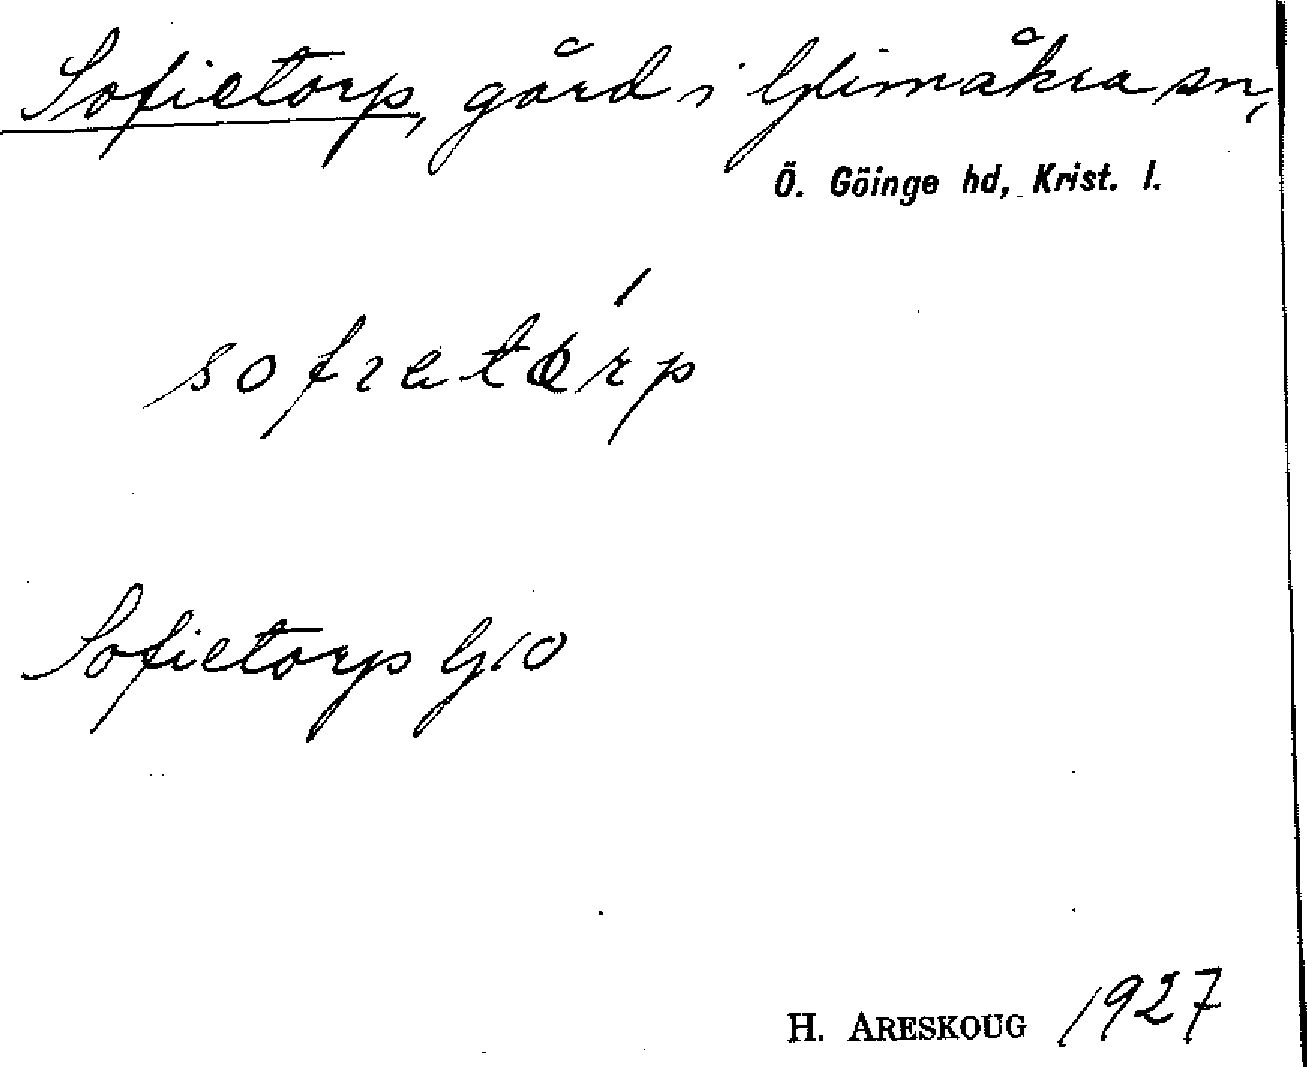 Sofietorp, gård i Glimåkra sn,
Ö. Göinge hd, Krist. l.
Sofietorp GEO
H. ARESKOUG 1927